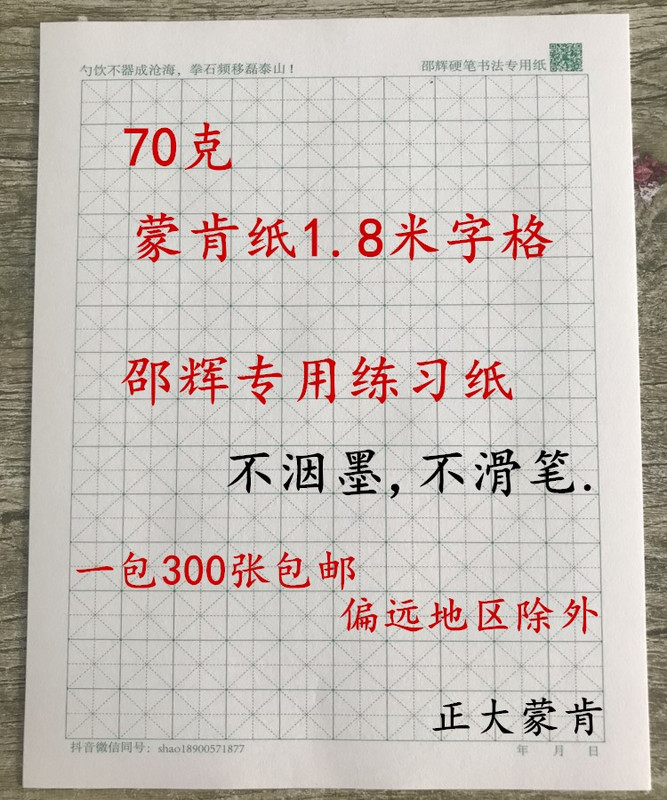 勺饮不器成沧海，拳石频移磊泰山！
邵辉硬笔书法专用纸
70克
蒙肯纸1.8米字格
邵辉专用练习纸
不洇墨,不滑笔.
一包300张包邮
偏远地区除外
正大蒙肯
抖音微信同号：shao18900571877
年 月 日